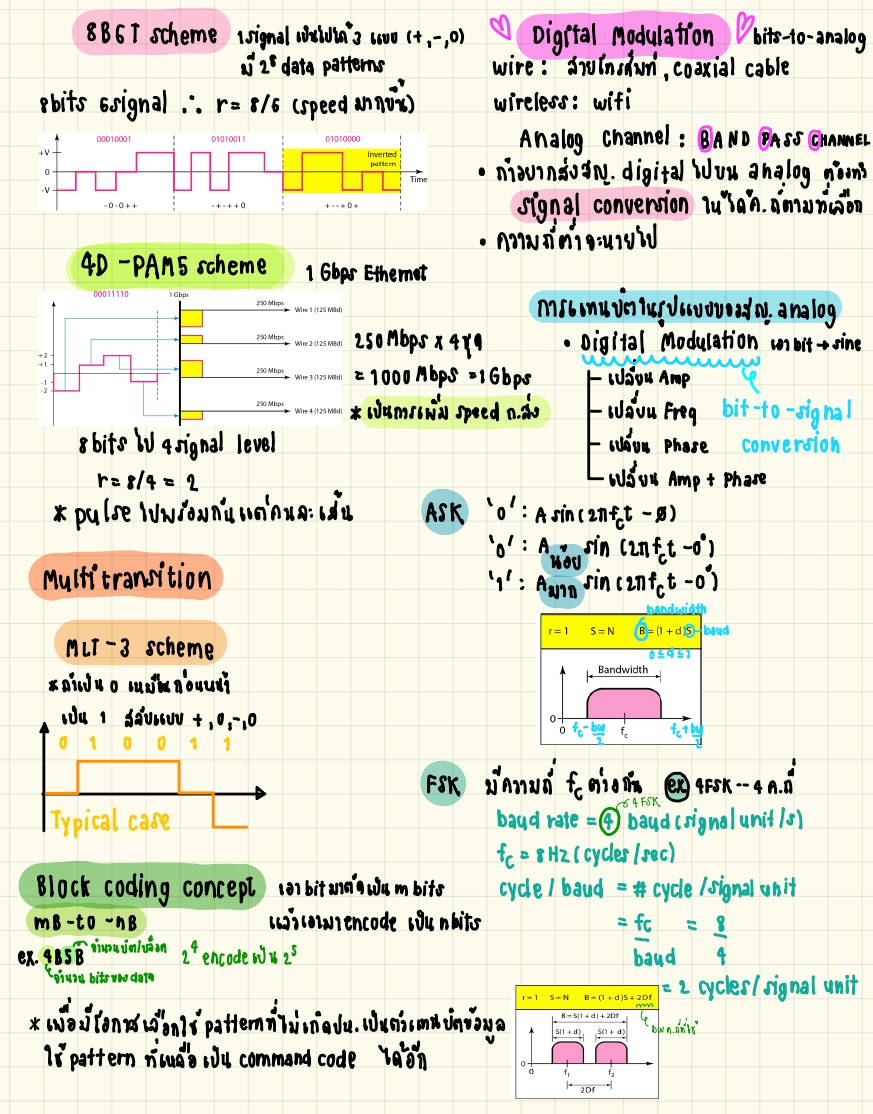 8B6T scheme 1signal เป็นไปได้ 3 แบบ (+,-,0)
มี 2⁸ data patterns
8bits 6signal ∴ r = 8/6 (speed มากขึ้น)
00010001 01010011 01010000
+V
0
-V
Inverted pattern
Time
- 0 - 0 + +
- + - + + 0
+ - - + 0 +
4D -PAM5 scheme 1 Gbps Ethernet
00011110
1 Gbps
+2
+1
-1
-2
250 Mbps
Wire 1 (125 MBd)
250 Mbps
Wire 2 (125 MBd)
250 Mbps
Wire 3 (125 MBd)
250 Mbps
Wire 4 (125 MBd)
250 Mbps x 4ชุด
= 1000 Mbps = 1Gbps
* เป็นการเพิ่ม speed ก.ส่ง
8bits ไป 4signal level
r = 8/4 = 2
* pulse ไปพร้อมกันแต่คนละเส้น
Multitransition
MLT-3 scheme
*ถ้าเป็น 0 เหมือนก่อนหน้า
เป็น 1 สลับแบบ +,0,-,0
0 1 0 0 1 1
Typical case
Block coding concept เอา bit มาตัดเป็น m bits
mB-to -nB แล้วเอามา encode เป็น nbits
ex. 4B5B จำนวนบิต/บล็อก 2⁴ encode เป็น 2⁵
จำนวน bits ของ data
* เพื่อมีโอกาสเลือกใช้ pattern ที่ไม่เกิดปน. เป็นตัวแทนบิตข้อมูล
ใช้ pattern ที่เหลือ เป็น command code ได้อีก
Digital Modulation bits-to-analog
wire : สายโทรศัพท์, coaxial cable
wireless: wifi
Analog Channel : BAND PASS CHANNEL
• ถ้าอยากส่งสญ. digital ไปบน analog ต้องทำ
signal conversion ให้ได้ค.ถี่ตามที่เลือก
• ความถี่ต่ำจะหายไป
การแทนบิตในรูปแบบของสญ. analog
• Digital Modulation เอา bit → sine
เปลี่ยน Amp
เปลี่ยน Freq
เปลี่ยน Phase
เปลี่ยน Amp + Phase
bit-to-signal
conversion
ASK '0' : A sin (2πf_ct - ø)
'0' : A น้อย sin (2πf_ct - 0°)
'1' : A มาก sin (2πf_ct - 0°)
bandwidth
r = 1 S = N B = (1 + d)S baud
0 ≤ d ≤ 1
Bandwidth
0
0 f_c - bw/2 f_c f_c + bw/2
FSK มีความถี่ f_c ต่างกัน ex 4FSK -- 4 ค.ถี่
4 FSK
baud rate = 4 baud (signal unit/s)
f_c = 8Hz (cycles/sec)
cycle / baud = # cycle /signal unit
= fc/baud = 8/4
= 2 cycles/signal unit
r = 1 S = N B = (1 + d)S + 2Df
B = S(1 + d) + 2Df
S(1 + d) S(1 + d)
0
0 f₁ f₂
2Df